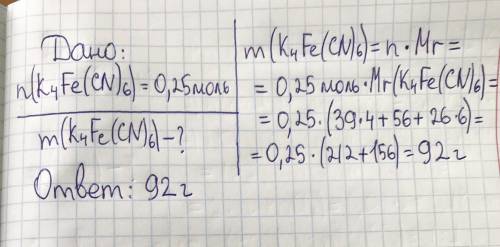 Дано:
n(K₄Fe(CN)₆)=0,25моль
m(K₄Fe(CN)₆)-?
Ответ: 92г
m(K₄Fe(CN)₆)=n·Mr=
=0,25моль·Mr(K₄Fe(CN)₆)=
=0,25·(39·4+56+26·6)=
=0,25·(212+156)=92г